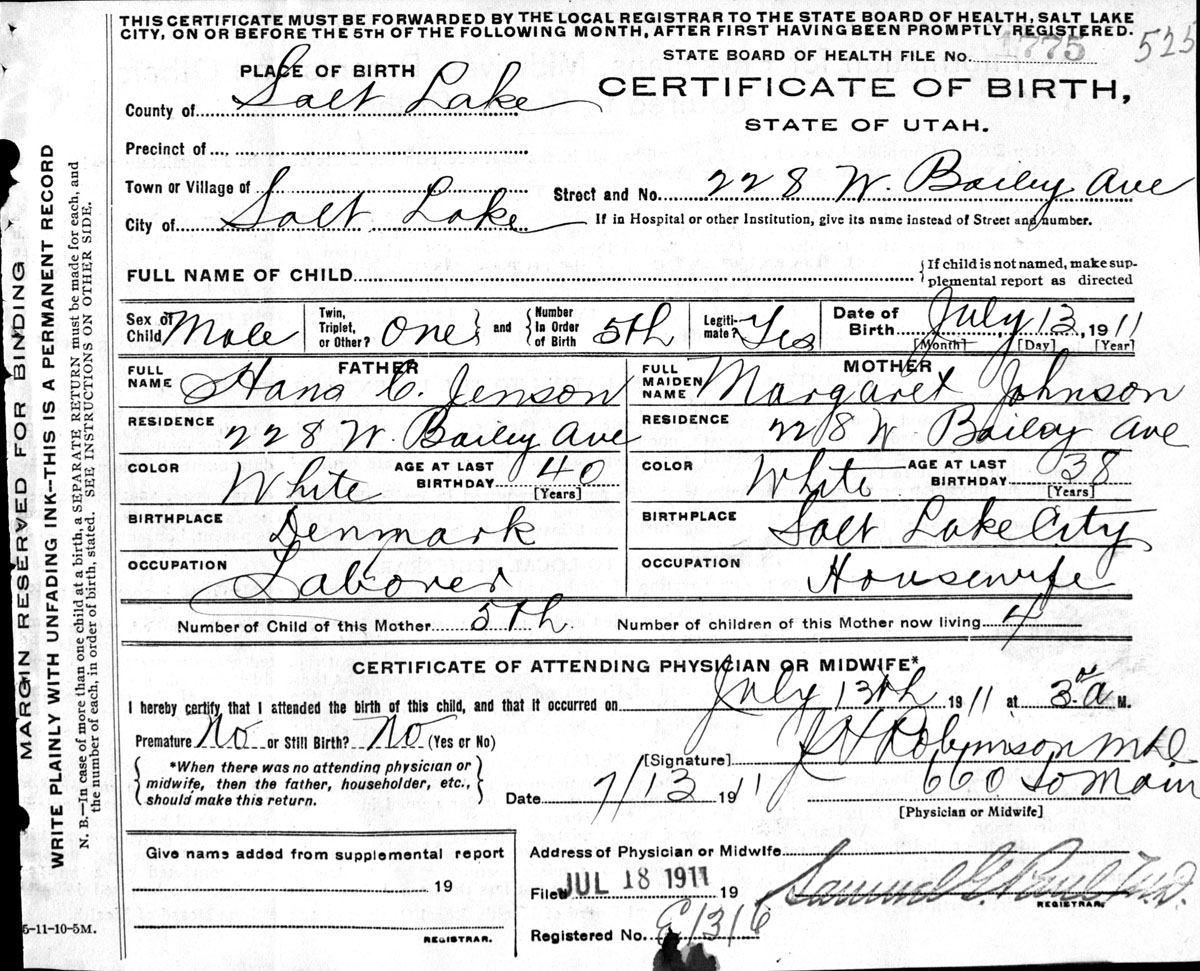 THIS CERTIFICATE MUST BE FORWARDED BY THE LOCAL REGISTRAR TO THE STATE BOARD OF HEALTH, SALT LAKE
CITY, ON OR BEFORE THE 5TH OF THE FOLLOWING MONTH, AFTER FIRST HAVING BEEN PROMPTLY REGISTERED.
STATE BOARD OF HEALTH FILE No. 1775 525
PLACE OF BIRTH
CERTIFICATE OF BIRTH,
County of Salt Lake
STATE OF UTAH.
Precinct of
Town or Village of
Street and No. 228 W. Bailey Ave
City of Salt Lake
If in Hospital or other Institution, give its name instead of Street and number.
FULL NAME OF CHILD
{If child is not named, make sup-
plemental report as directed
Sex of Child Male
Twin, Triplet, or Other? One } and { Number In Order of Birth 5th
Legiti-mate? Yes
Date of Birth July 13, 1911
[Month] [Day] [Year]
FATHER
FULL NAME Hans C. Jenson
MOTHER
FULL MAIDEN NAME Margaret Johnson
RESIDENCE 228 W. Bailey Ave
RESIDENCE 228 W Bailey Ave
COLOR White AGE AT LAST BIRTHDAY 40 [Years]
COLOR White AGE AT LAST BIRTHDAY 38 [Years]
BIRTHPLACE Denmark
BIRTHPLACE Salt Lake City
OCCUPATION Laborer
OCCUPATION Housewife
Number of Child of this Mother 5th Number of children of this Mother now living 4
CERTIFICATE OF ATTENDING PHYSICIAN OR MIDWIFE*
I hereby certify that I attended the birth of this child, and that it occurred on July 13th 1911 at 3 a M.
Premature No or Still Birth? No (Yes or No)
[Signature] Robinson M.D.
{ *When there was no attending physician or
midwife, then the father, householder, etc.,
should make this return. }
Date 7/13 1911 660 So Main
[Physician or Midwife]
Give name added from supplemental report
19
REGISTRAR.
Address of Physician or Midwife
Filed JUL 18 1911 19 Samuel G. Paul M.D.
REGISTRAR.
Registered No. 1316
5-11-10-5M.
MARGIN RESERVED FOR BINDING
WRITE PLAINLY WITH UNFADING INK—THIS IS A PERMANENT RECORD
N. B.—In case of more than one child at a birth, a SEPARATE RETURN must be made for each, and
the number of each, in order of birth, stated. SEE INSTRUCTIONS ON OTHER SIDE.